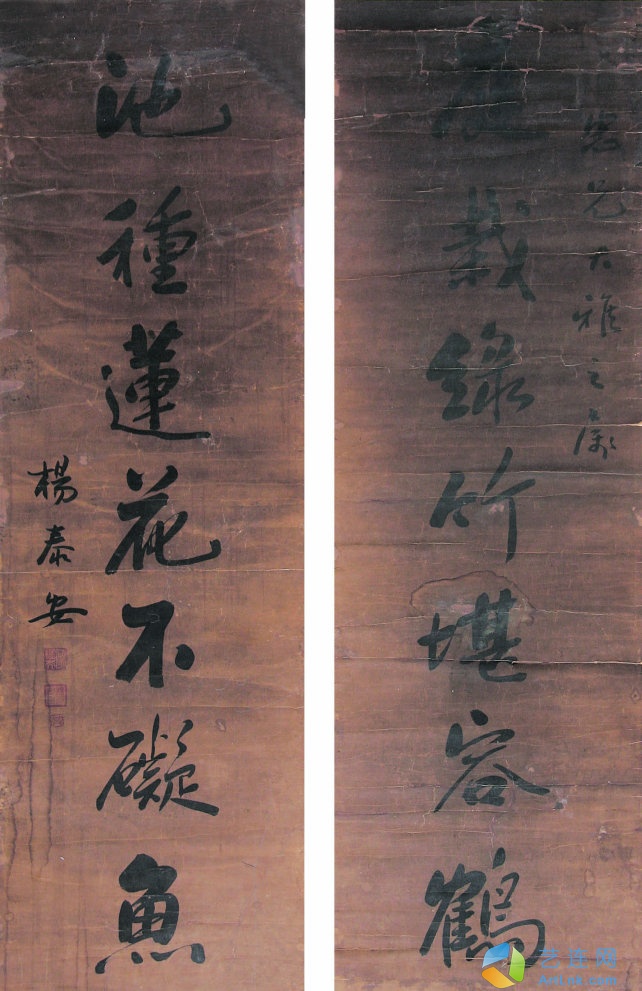 庭栽綠竹堪容鶴
兄大雅之屬
池種蓮花不礙魚
楊泰安